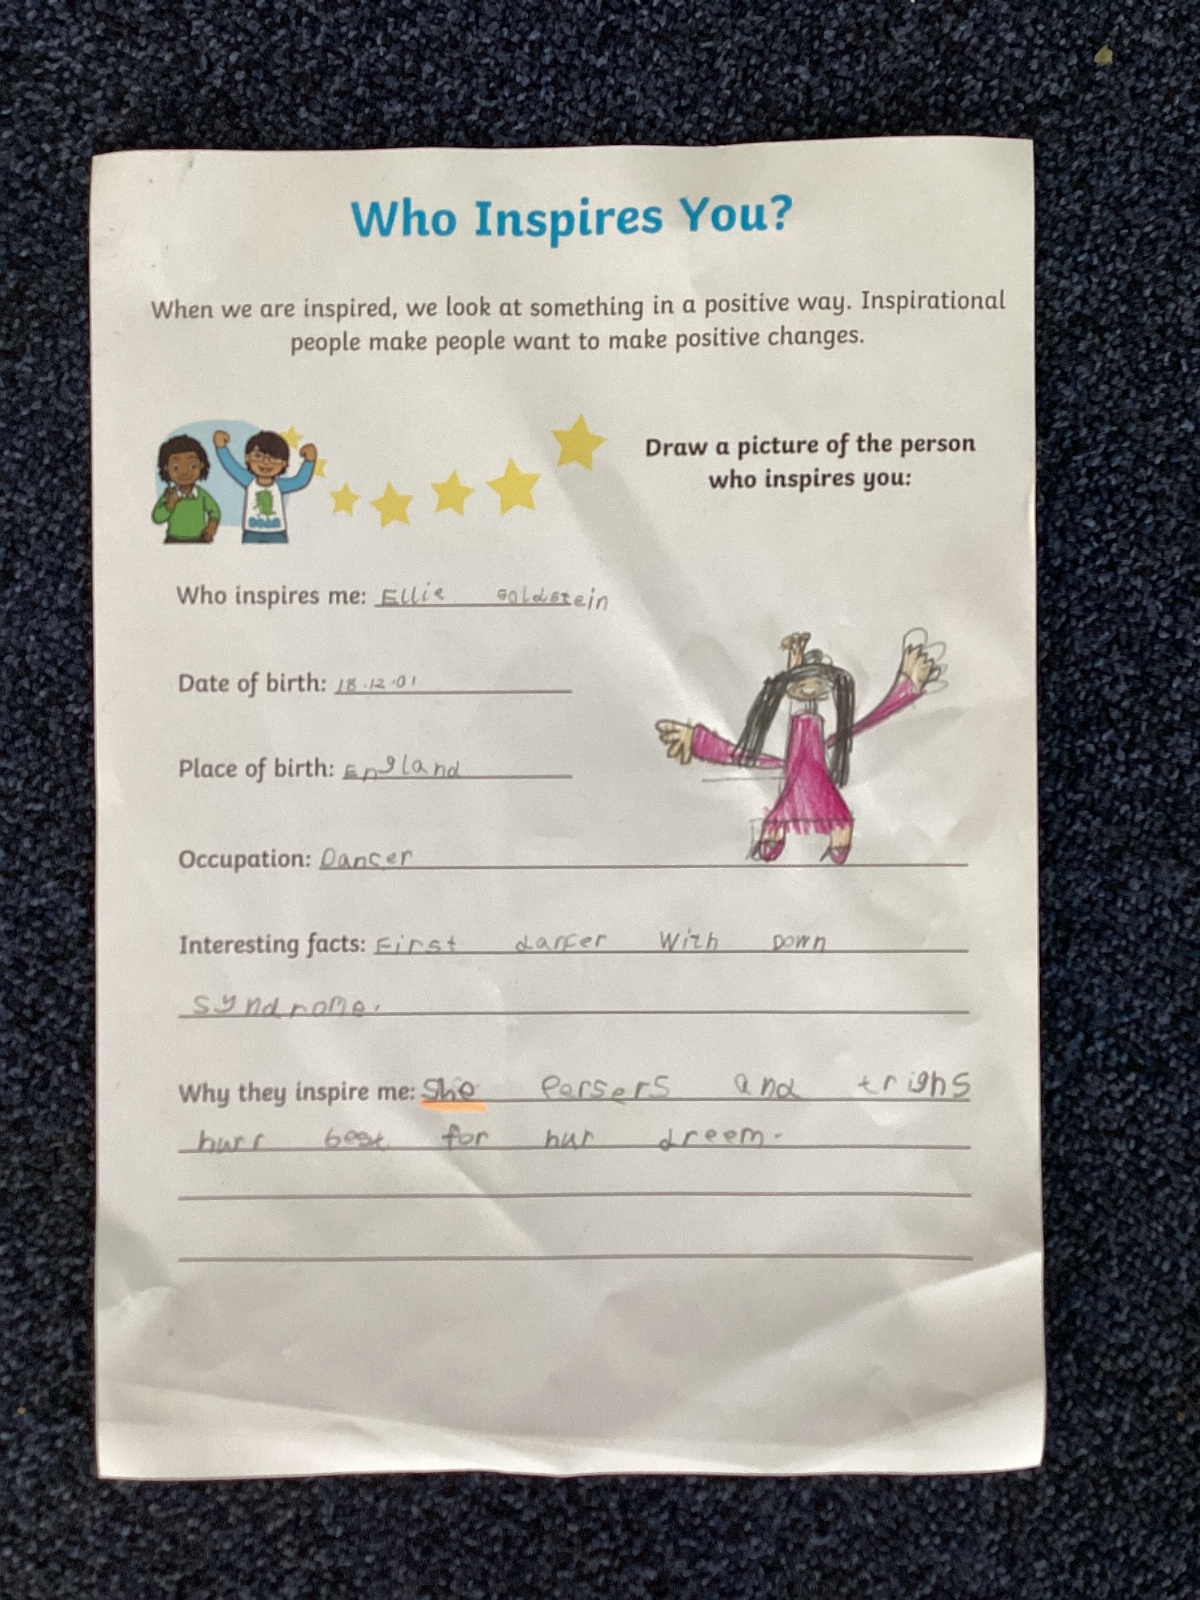 Who Inspires You?
When we are inspired, we look at something in a positive way. Inspirational
people make people want to make positive changes.
Draw a picture of the person
who inspires you:
Who inspires me: Ellie Goldstein
Date of birth: 18.12.01
Place of birth: England
Occupation: Dancer
Interesting facts: First dancer With Down
syndrome.
Why they inspire me: She Persers and trighs
hurr best for hur dreem.